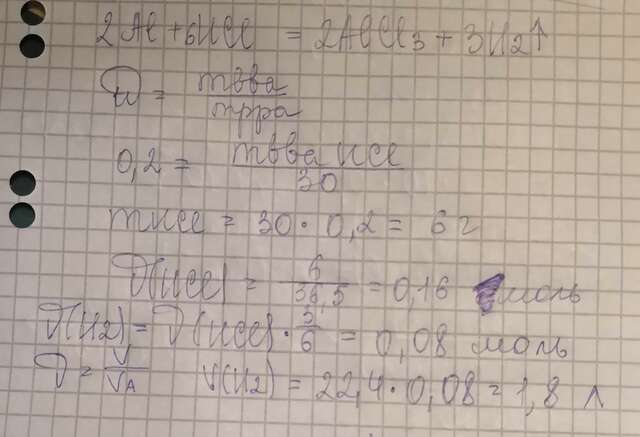 2Al + 6HCl = 2AlCl₃ + 3H₂↑
W = mвва / mрра
0,2 = mвва HCl / 30
mHCl = 30 · 0,2 = 6 г
ν(HCl) = 6 / 36,5 = 0,16 моль
ν(H₂) = ν(HCl) · 3/6 = 0,08 моль
ν = V / VA V(H₂) = 22,4 · 0,08 = 1,8 л